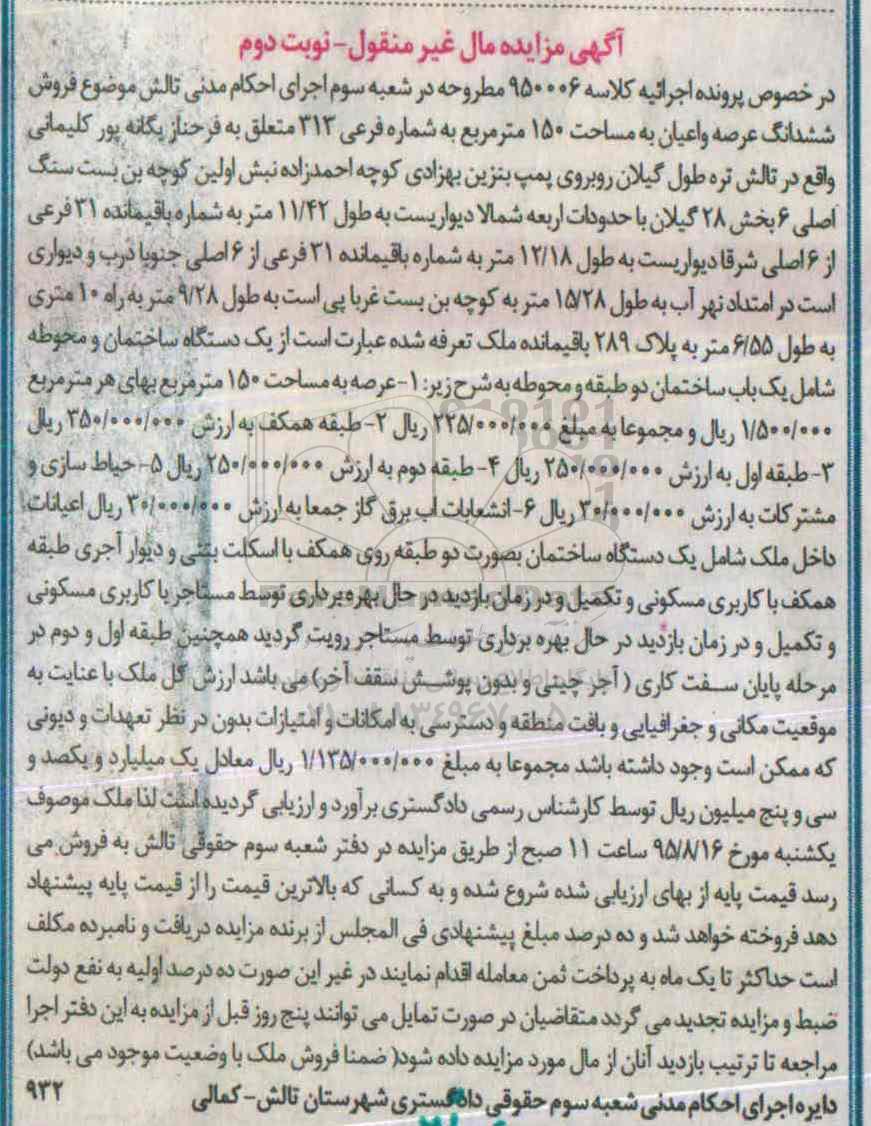 آگهی مزایده مال غیر منقول- نوبت دوم
در خصوص پرونده اجرائیه کلاسه ۹۵۰۰۰۶ مطروحه در شعبه سوم اجرای احکام مدنی تالش موضوع فروش
ششدانگ عرصه واعیان به مساحت ۱۵۰ مترمربع به شماره فرعی ۳۱۳ متعلق به فرحناز یگانه پور کلیمانی
واقع در تالش تره طول گیلان روبروی پمپ بنزین بهزادی کوچه احمدزاده نبش اولین کوچه بن بست سنگ
اصلی ۶ بخش ۲۸ گیلان با حدودات اربعه شمالا دیواریست به طول ۱۱/۴۲ متر به شماره باقیمانده ۳۱ فرعی
از ۶ اصلی شرقا دیواریست به طول ۱۲/۱۸ متر به شماره باقیمانده ۳۱ فرعی از ۶ اصلی جنوبا درب و دیواری
است در امتداد نهر آب به طول ۱۵/۲۸ متر به کوچه بن بست غربا پی است به طول ۹/۲۸ متر به راه ۱۰ متری
به طول ۶/۵۵ متر به پلاک ۲۸۹ باقیمانده ملک تعرفه شده عبارت است از یک دستگاه ساختمان و محوطه
شامل یک باب ساختمان دو طبقه و محوطه به شرح زیر: ۱-عرصه به مساحت ۱۵۰ مترمربع بهای هر مترمربع
۱/۵۰۰/۰۰۰ ریال و مجموعا به مبلغ ۲۲۵/۰۰۰/۰۰۰ ریال ۲- طبقه همکف به ارزش ۳۵۰/۰۰۰/۰۰۰ ریال
۳- طبقه اول به ارزش ۲۵۰/۰۰۰/۰۰۰ ریال ۴- طبقه دوم به ارزش ۲۵۰/۰۰۰/۰۰۰ ریال ۵- حیاط سازی و
مشترکات به ارزش ۳۰/۰۰۰/۰۰۰ ریال ۶- انشعابات اب برق گاز جمعا به ارزش ۳۰/۰۰۰/۰۰۰ ریال اعیانات
داخل ملک شامل یک دستگاه ساختمان بصورت دو طبقه روی همکف با اسکلت بتنی و دیوار آجری طبقه
همکف با کاربری مسکونی و تکمیل و در زمان بازدید در حال بهره برداری توسط مستاجر با کاربری مسکونی
و تکمیل و در زمان بازدید در حال بهره برداری توسط مستاجر رویت گردید همچنین طبقه اول و دوم در
مرحله پایان سفت کاری ( آجر چینی و بدون پوشش سقف آخر) می باشد ارزش کل ملک با عنایت به
موقعیت مکانی و جغرافیایی و بافت منطقه و دسترسی به امکانات و امتیازات بدون در نظر تعهدات و دیونی
که ممکن است وجود داشته باشد مجموعا به مبلغ ۱/۱۳۵/۰۰۰/۰۰۰ ریال معادل یک میلیارد و یکصد و
سی و پنج میلیون ریال توسط کارشناس رسمی دادگستری برآورد و ارزیابی گردیده است لذا ملک موصوف
یکشنبه مورخ ۹۵/۸/۱۶ ساعت ۱۱ صبح از طریق مزایده در دفتر شعبه سوم حقوقی تالش به فروش می
رسد قیمت پایه از بهای ارزیابی شده شروع شده و به کسانی که بالاترین قیمت را از قیمت پایه پیشنهاد
دهد فروخته خواهد شد و ده درصد مبلغ پیشنهادی فی المجلس از برنده مزایده دریافت و نامبرده مکلف
است حداکثر تا یک ماه به پرداخت ثمن معامله اقدام نمایند در غیر این صورت ده درصد اولیه به نفع دولت
ضبط و مزایده تجدید می گردد متقاضیان در صورت تمایل می توانند پنج روز قبل از مزایده به این دفتر اجرا
مراجعه تا ترتیب بازدید آنان از مال مورد مزایده داده شود( ضمنا فروش ملک با وضعیت موجود می باشد)
دایره اجرای احکام مدنی شعبه سوم حقوقی دادگستری شهرستان تالش- کمالی ۹۳۲